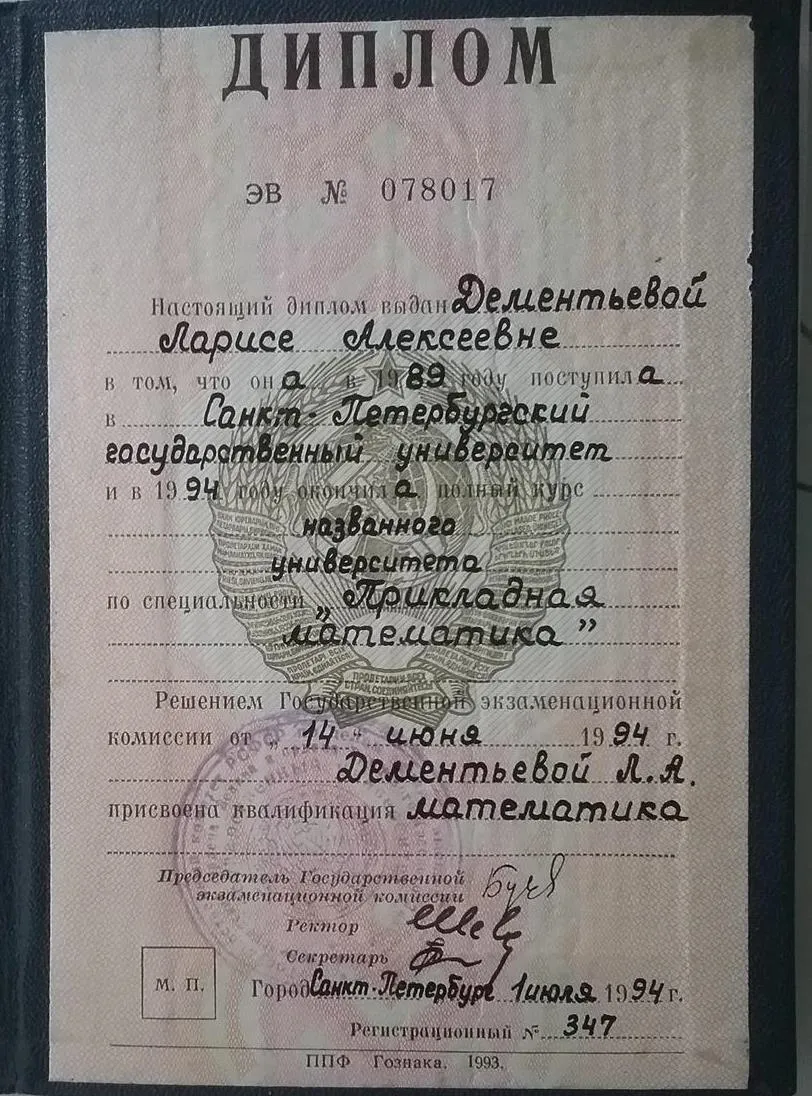 ДИПЛОМ
ЭВ № 078017
Настоящий диплом выдан Дементьевой
Ларисе Алексеевне
в том, что она в 1989 году поступила
в Санкт-Петербургский
государственный университет
и в 1994 году окончила полный курс
названного
университета
по специальности „Прикладная
математика”
Решением Государственной экзаменационной
комиссии от „14" июня 1994 г.
Дементьевой Л.А.
присвоена квалификация математика
Председатель Государственной
экзаменационной комиссии
Ректор
Секретарь
М. П.
Город Санкт-Петербург 1 июля 1994 г.
Регистрационный № 347
ППФ Гознака. 1993.